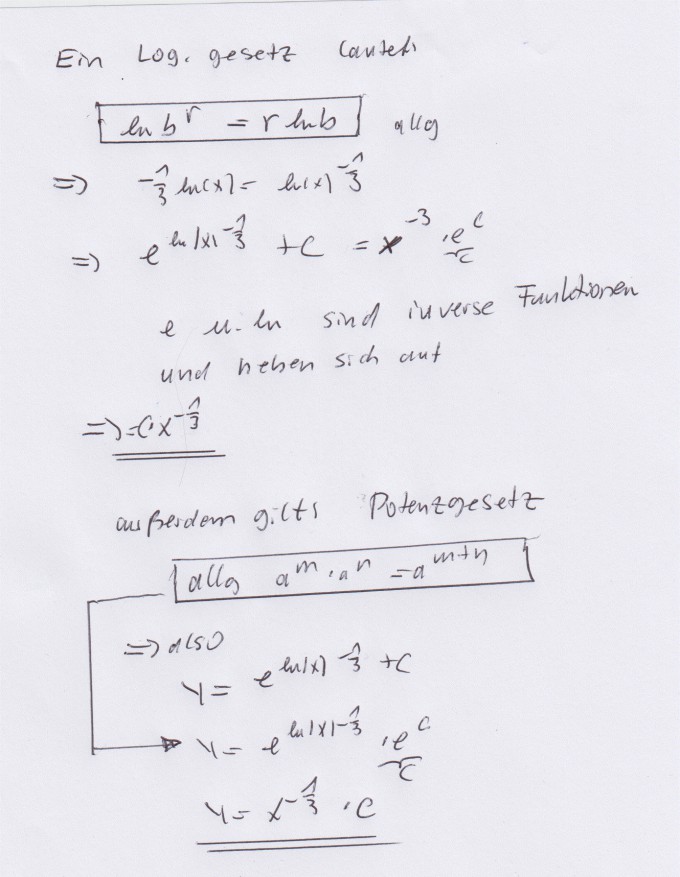 Ein Log. gesetz lautet:
ln b^r = r ln b allg
=> -1/3 ln(x) = ln(x)^-1/3
=> e^ln|x|^-1/3 + C = x^-3 · e^C
C
e u. ln sind inverse Funktionen
und heben sich auf
=> y = C x^-1/3
außerdem gilt: Potenzgesetz
allg a^m · a^n = a^m+n
=> also
y = e^ln|x|^-1/3 + C
y = e^ln|x|^-1/3 · e^C
C
y = x^-1/3 · C